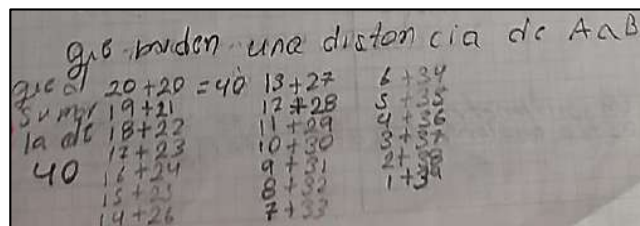 que miden una distancia de A a B
que al sumar la de 40
20+20=40
19+21
18+22
17+23
16+24
15+25
14+26
13+27
12+28
11+29
10+30
9+31
8+32
7+33
6+34
5+35
4+36
3+37
2+38
1+39